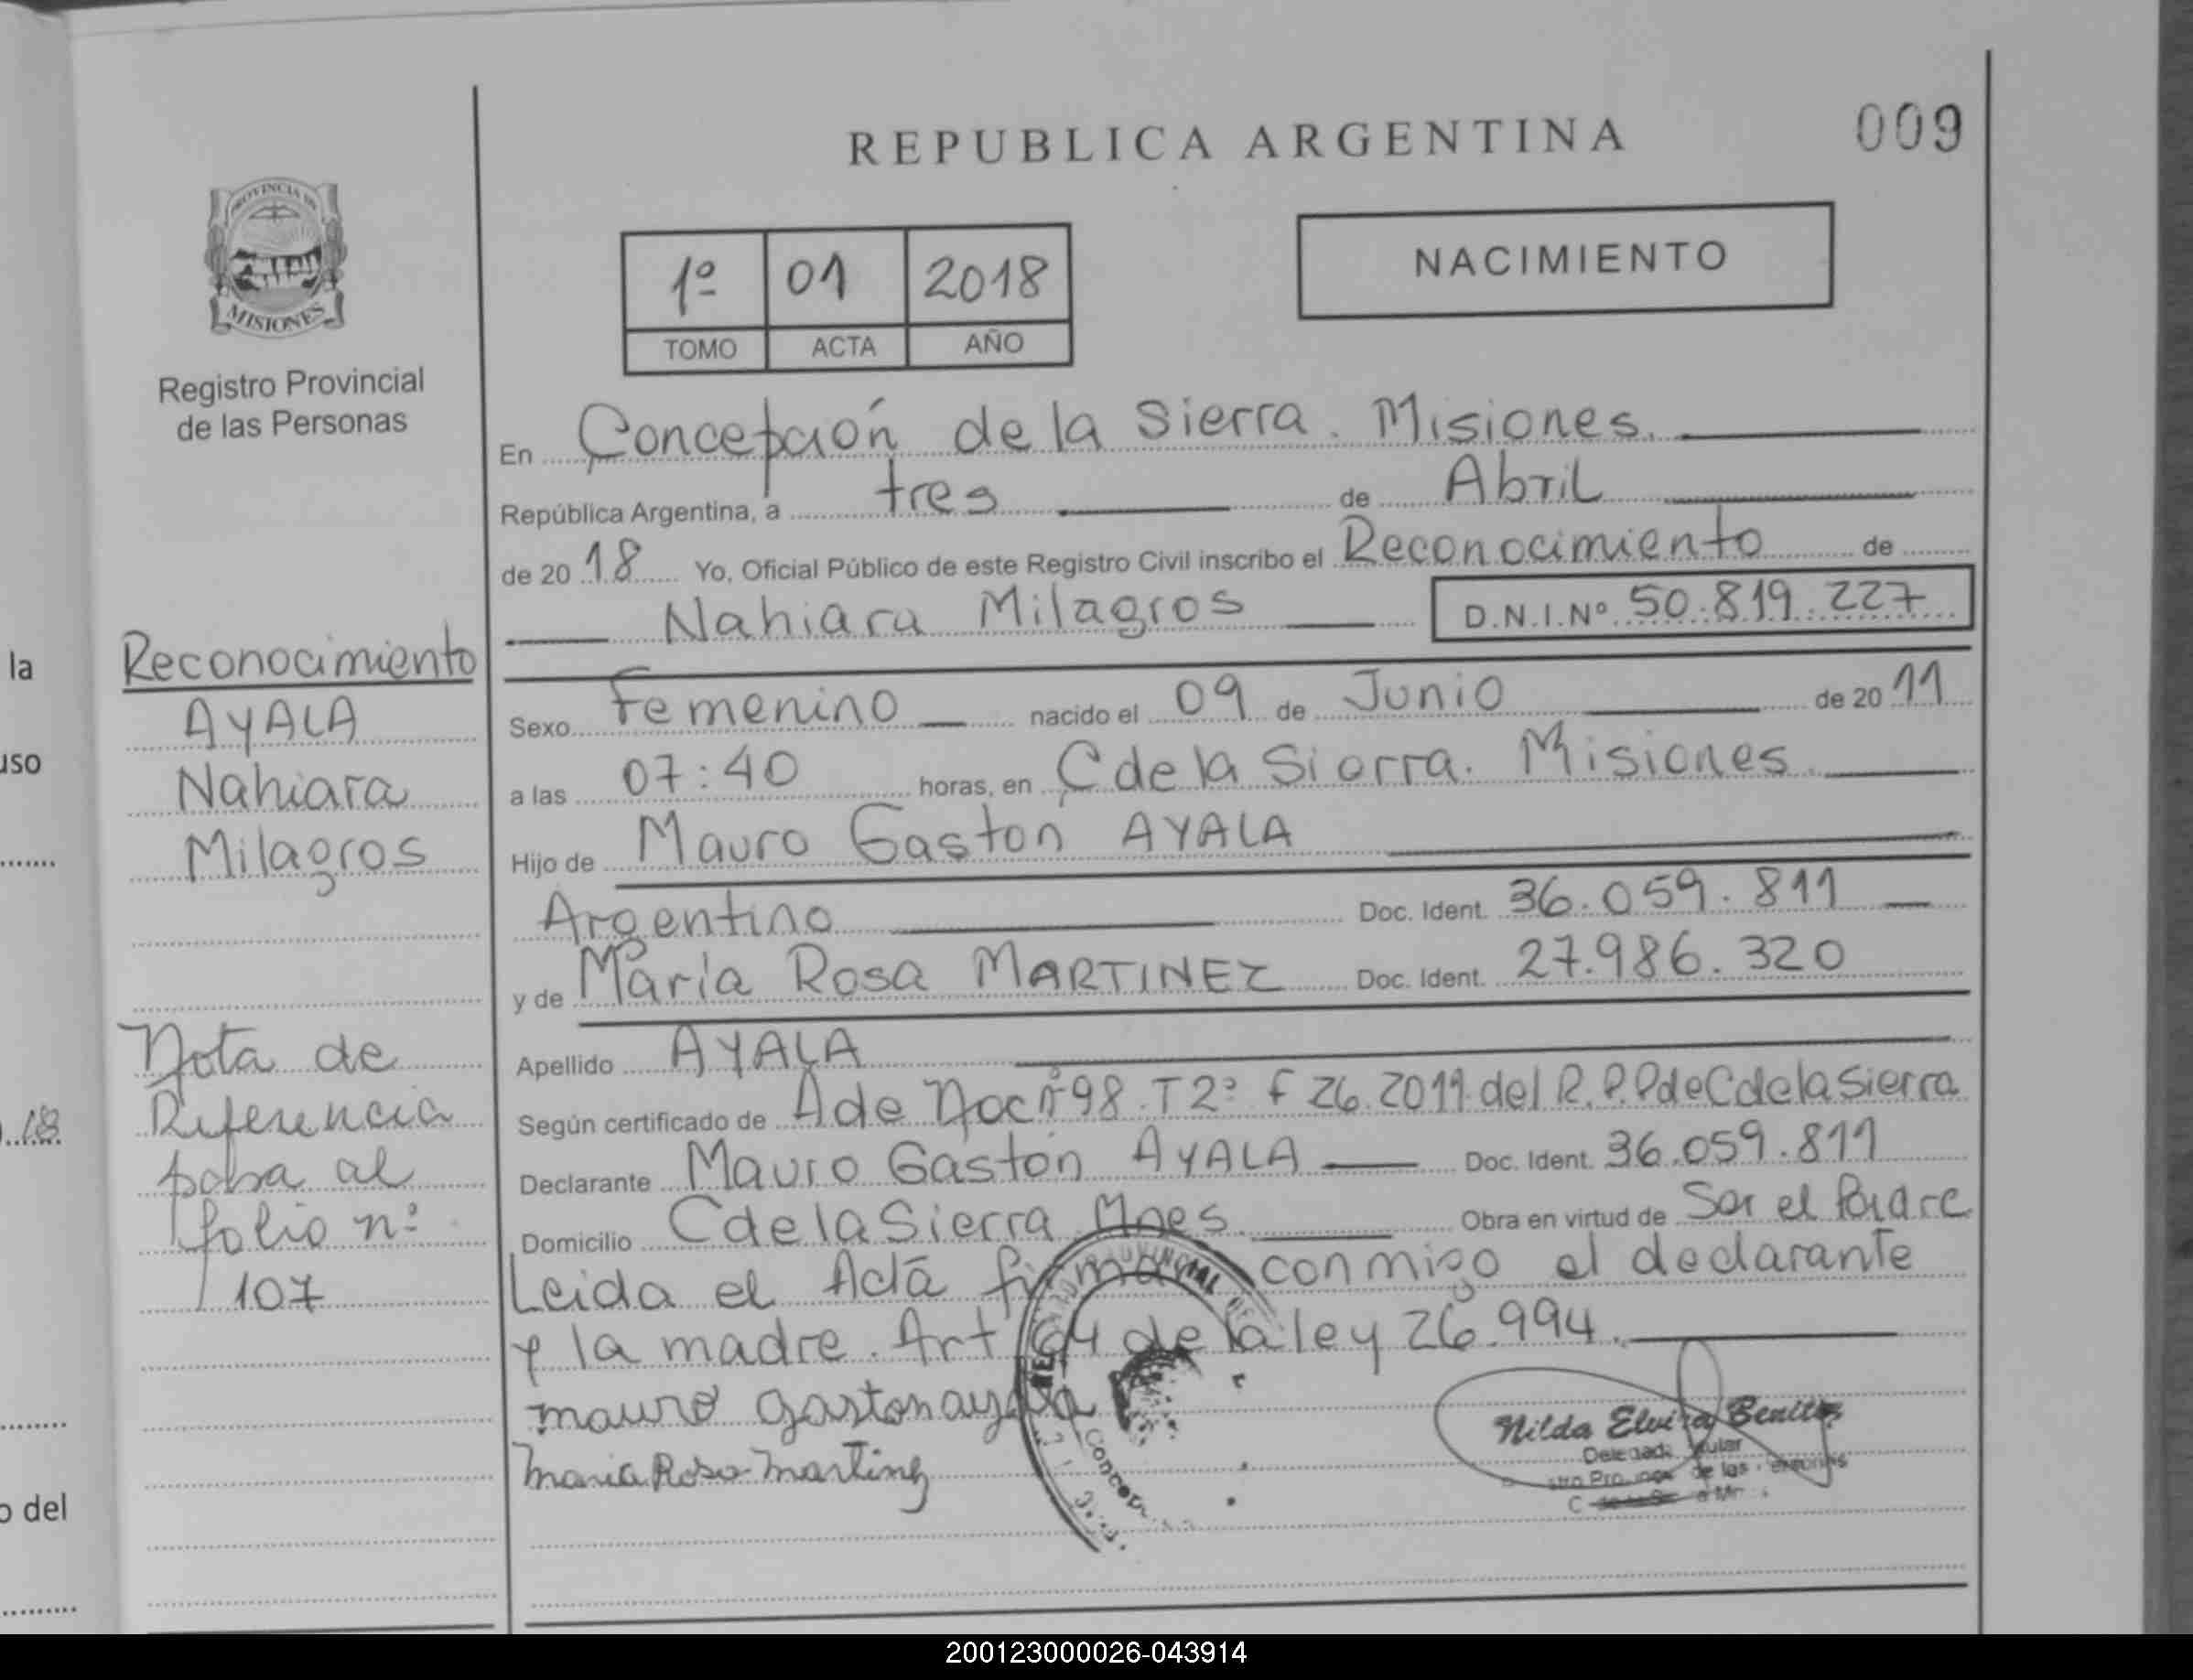 REPUBLICA ARGENTINA
009
PROVINCIA DE
MISIONES
Registro Provincial
de las Personas
1º 01 2018
TOMO ACTA AÑO
NACIMIENTO
En Concepción de la Sierra. Misiones.
República Argentina, a tres de Abril
de 20 18 Yo, Oficial Público de este Registro Civil inscribo el Reconocimiento de
Nahiara Milagros D.N.I.Nº 50.819.227
Sexo Femenino nacido el 09 de Junio de 20 11
a las 07:40 horas, en C de la Sierra. Misiones.
Hijo de Mauro Gaston AYALA
Argentino Doc. Ident. 36.059.811
y de María Rosa MARTINEZ Doc. Ident. 27.986.320
Apellido AYALA
Según certificado de A de Nac nº 98. T 2º F 26. 2011. del R.P.P de C de la Sierra
Declarante Mauro Gastón AYALA Doc. Ident. 36.059.811
Domicilio C de la Sierra Mnes. Obra en virtud de Ser el Padre
Leida el Acta firman conmigo el declarante
y la madre. Art 64 de la ley 26.994.
mauro gaston ayala
maria Rosa martinez
Nilda Elvira Benitez
Concep
Reconocimiento
AYALA
Nahiara
Milagros
Nota de
Referencia
pasa al
folio nº
107
la
uso
18
o del
200123000026-043914